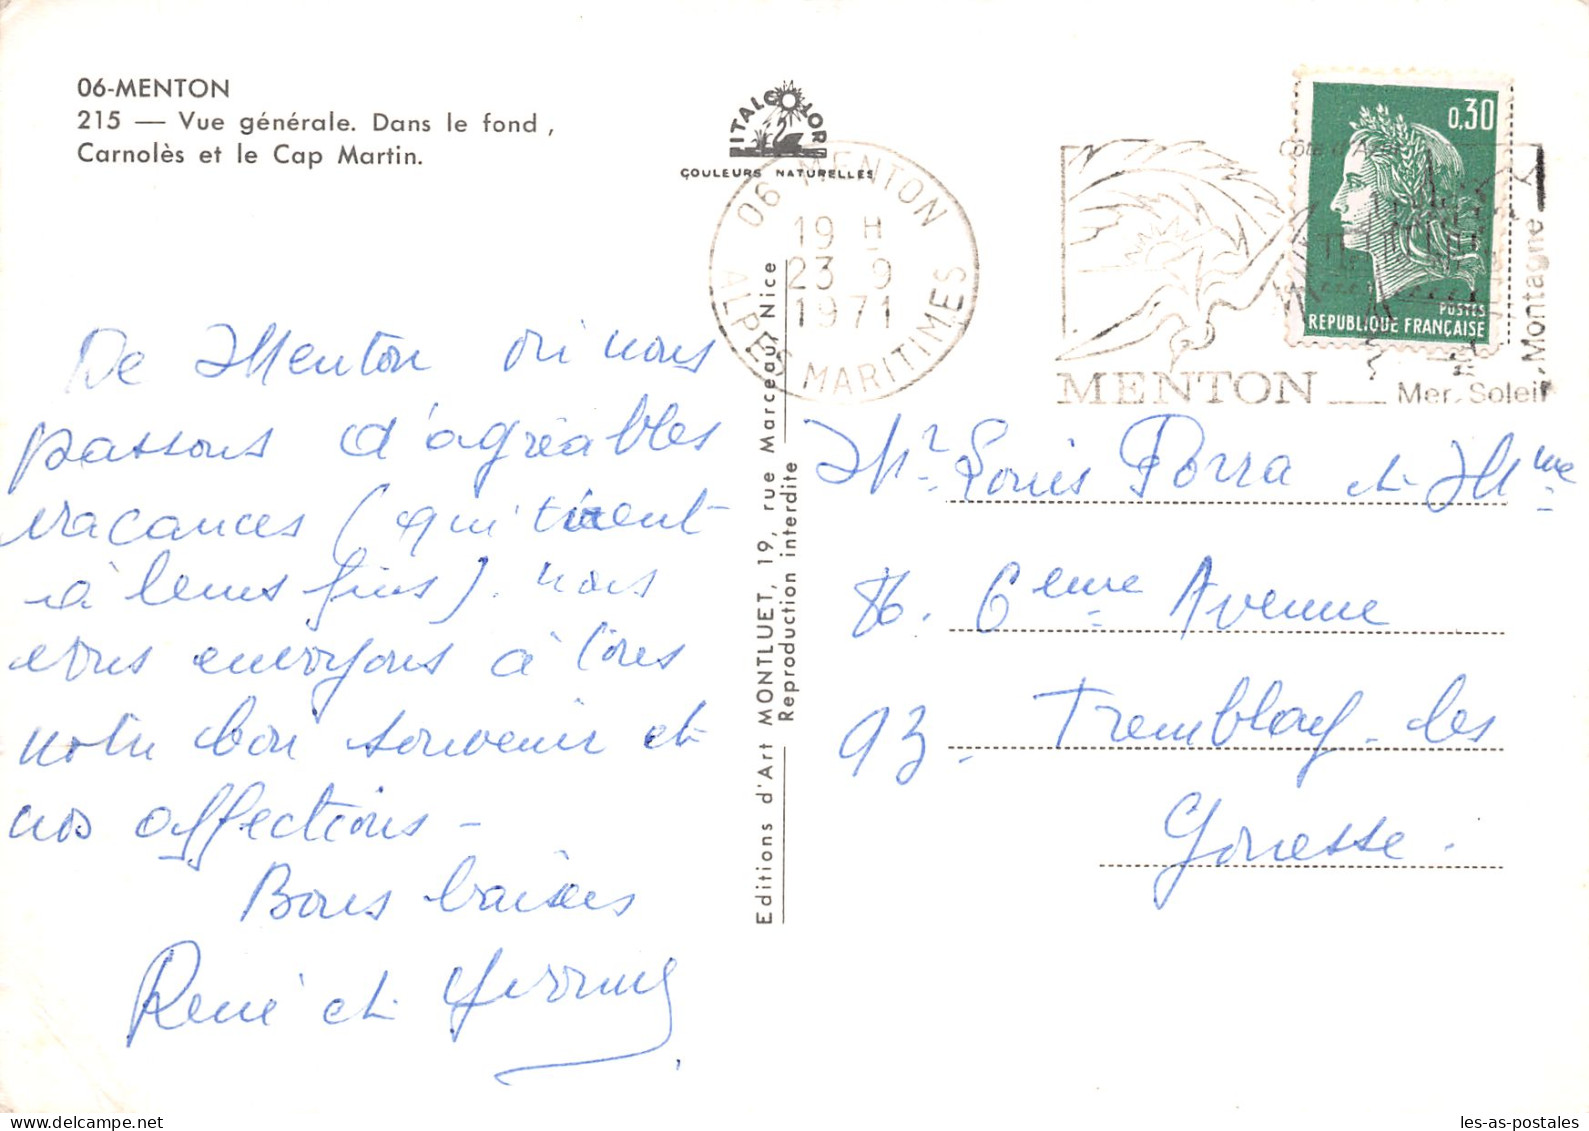 06-MENTON
215 — Vue générale. Dans le fond,
Carnolès et le Cap Martin.
ITALCOLOR
COULEURS NATURELLES
06 MENTON
19 H
23 9
1971
ALPES MARITIMES
Côte d'Azur
MENTON __ Mer, Soleil, Montagne
0,30
POSTES
REPUBLIQUE FRANÇAISE
De Menton où nous
passons d'agréables
vacances (qui tirent
à leurs fins) nous
vous envoyons à tous
notre bon souvenir et
nos affections –
Bons baisers
René et Yvonne
Editions d'Art MONTLUET, 19, rue Marceau, Nice
Reproduction interdite
Mr Louis Porra et Mme
6eme Avenue
93. Tremblay-les
Gonesse.
les-as-postales